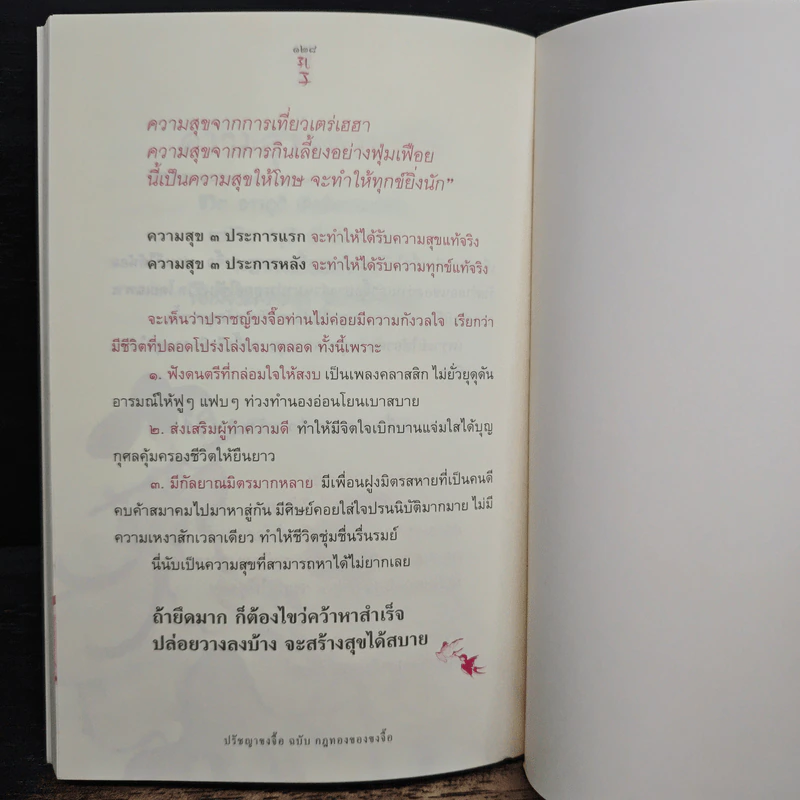 ๑๒๘
ความสุขจากการเที่ยวเตร่เฮฮา
ความสุขจากการกินเลี้ยงอย่างฟุ่มเฟือย
นี้เป็นความสุขให้โทษ จะทำให้ทุกข์ยิ่งนัก”
ความสุข ๓ ประการแรก จะทำให้ได้รับความสุขแท้จริง
ความสุข ๓ ประการหลัง จะทำให้ได้รับความทุกข์แท้จริง
จะเห็นว่าปราชญ์ขงจื๊อท่านไม่ค่อยมีความกังวลใจ เรียกว่า
มีชีวิตที่ปลอดโปร่งโล่งใจมาตลอด ทั้งนี้เพราะ
๑. ฟังดนตรีที่กล่อมใจให้สงบ เป็นเพลงคลาสสิก ไม่ยั่วยุดุดัน
อารมณ์ให้ฟูๆ แฟบๆ ท่วงทำนองอ่อนโยนเบาสบาย
๒. ส่งเสริมผู้ทำความดี ทำให้มีจิตใจเบิกบานแจ่มใสได้บุญ
กุศลคุ้มครองชีวิตให้ยืนยาว
๓. มีกัลยาณมิตรมากหลาย มีเพื่อนฝูงมิตรสหายที่เป็นคนดี
คบค้าสมาคมไปมาหาสู่กัน มีศิษย์คอยใส่ใจปรนนิบัติมากมาย ไม่มี
ความเหงาสักเวลาเดียว ทำให้ชีวิตชุ่มชื่นรื่นรมย์
นี่นับเป็นความสุขที่สามารถหาได้ไม่ยากเลย
ถ้ายึดมาก ก็ต้องไขว่คว้าหาสำเร็จ
ปล่อยวางลงบ้าง จะสร้างสุขได้สบาย
ปรัชญาขงจื๊อ ฉบับ กฎทองของขงจื๊อ